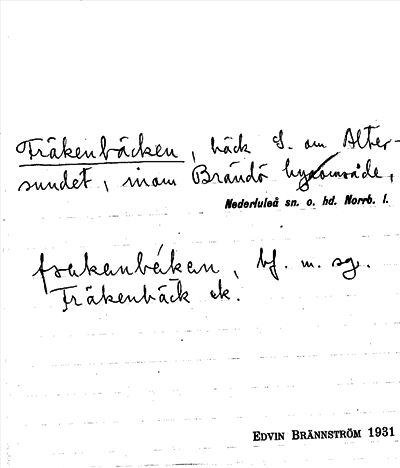 Fräkenbäcken, bäck S. om Alter-
sundet, inom Brändö byområde,
Nederluleå sn. o. hd. Norrb. l.
frakenbékan, bf. m. sg.
Fräkenbäck ek.
EDVIN BRÄNNSTRÖM 1931